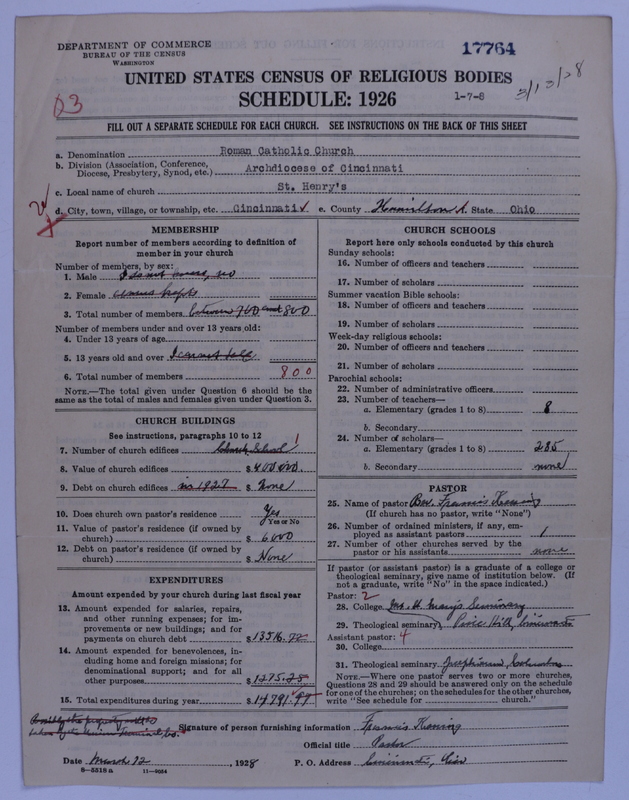 DEPARTMENT OF COMMERCE
BUREAU OF THE CENSUS
WASHINGTON
17764
UNITED STATES CENSUS OF RELIGIOUS BODIES
SCHEDULE: 1926
1-7-8
3/13/28
D3
FILL OUT A SEPARATE SCHEDULE FOR EACH CHURCH. SEE INSTRUCTIONS ON THE BACK OF THIS SHEET
a. Denomination Roman Catholic Church
b. Division (Association, Conference, Diocese, Presbytery, Synod, etc.) Archdiocese of Cincinnati
c. Local name of church St. Henry's
d. City, town, village, or township, etc. Cincinnati e. County Hamilton State Ohio
MEMBERSHIP
Report number of members according to definition of
member in your church
Number of members, by sex:
1. Male I do not
2. Female census
3. Total number of members between 700 and 800
Number of members under and over 13 years old:
4. Under 13 years of age
5. 13 years old and over I cannot tell
6. Total number of members 800
NOTE.—The total given under Question 6 should be the
same as the total of males and females given under Question 3.
CHURCH BUILDINGS
See instructions, paragraphs 10 to 12
7. Number of church edifices Church School 1
8. Value of church edifices $400000.
9. Debt on church edifices in 1927 $ None
10. Does church own pastor's residence Yes
Yes or No
11. Value of pastor's residence (if owned by
church) $ 6000
12. Debt on pastor's residence (if owned by
church) $ None
EXPENDITURES
Amount expended by your church during last fiscal year
13. Amount expended for salaries, repairs,
and other running expenses; for im-
provements or new buildings; and for
payments on church debt $13516.72
14. Amount expended for benevolences, in-
cluding home and foreign missions; for
denominational support; and for all
other purposes $1275.25
15. Total expenditures during year $14791.97
CHURCH SCHOOLS
Report here only schools conducted by this church
Sunday schools:
16. Number of officers and teachers
17. Number of scholars
Summer vacation Bible schools:
18. Number of officers and teachers
19. Number of scholars
Week-day religious schools:
20. Number of officers and teachers
21. Number of scholars
Parochial schools:
22. Number of administrative officers
23. Number of teachers—
a. Elementary (grades 1 to 8) 8
b. Secondary
24. Number of scholars—
a. Elementary (grades 1 to 8) 285
b. Secondary none
PASTOR
25. Name of pastor Rev. Francis
(If church has no pastor, write "None")
26. Number of ordained ministers, if any, em-
ployed as assistant pastors 1
27. Number of other churches served by the
pastor or his assistants none
If pastor (or assistant pastor) is a graduate of a college or
theological seminary, give name of institution below. (If
not a graduate, write "No" in the space indicated.)
Pastor: 2
28. College Mt. St. Mary's Seminary
29. Theological seminary Price Hill, Cincinnati
Assistant pastor: 4
30. College
31. Theological seminary Josephinum Columbus
NOTE.—Where one pastor serves two or more churches,
Questions 28 and 29 should be answered only on the schedule
for one of the churches; on the schedules for the other churches,
write "See schedule for church."
Signature of person furnishing information Francis
Official title Pastor
Date March 12, 1928 P. O. Address Cincinnati, Ohio
8—5518a 11—9034